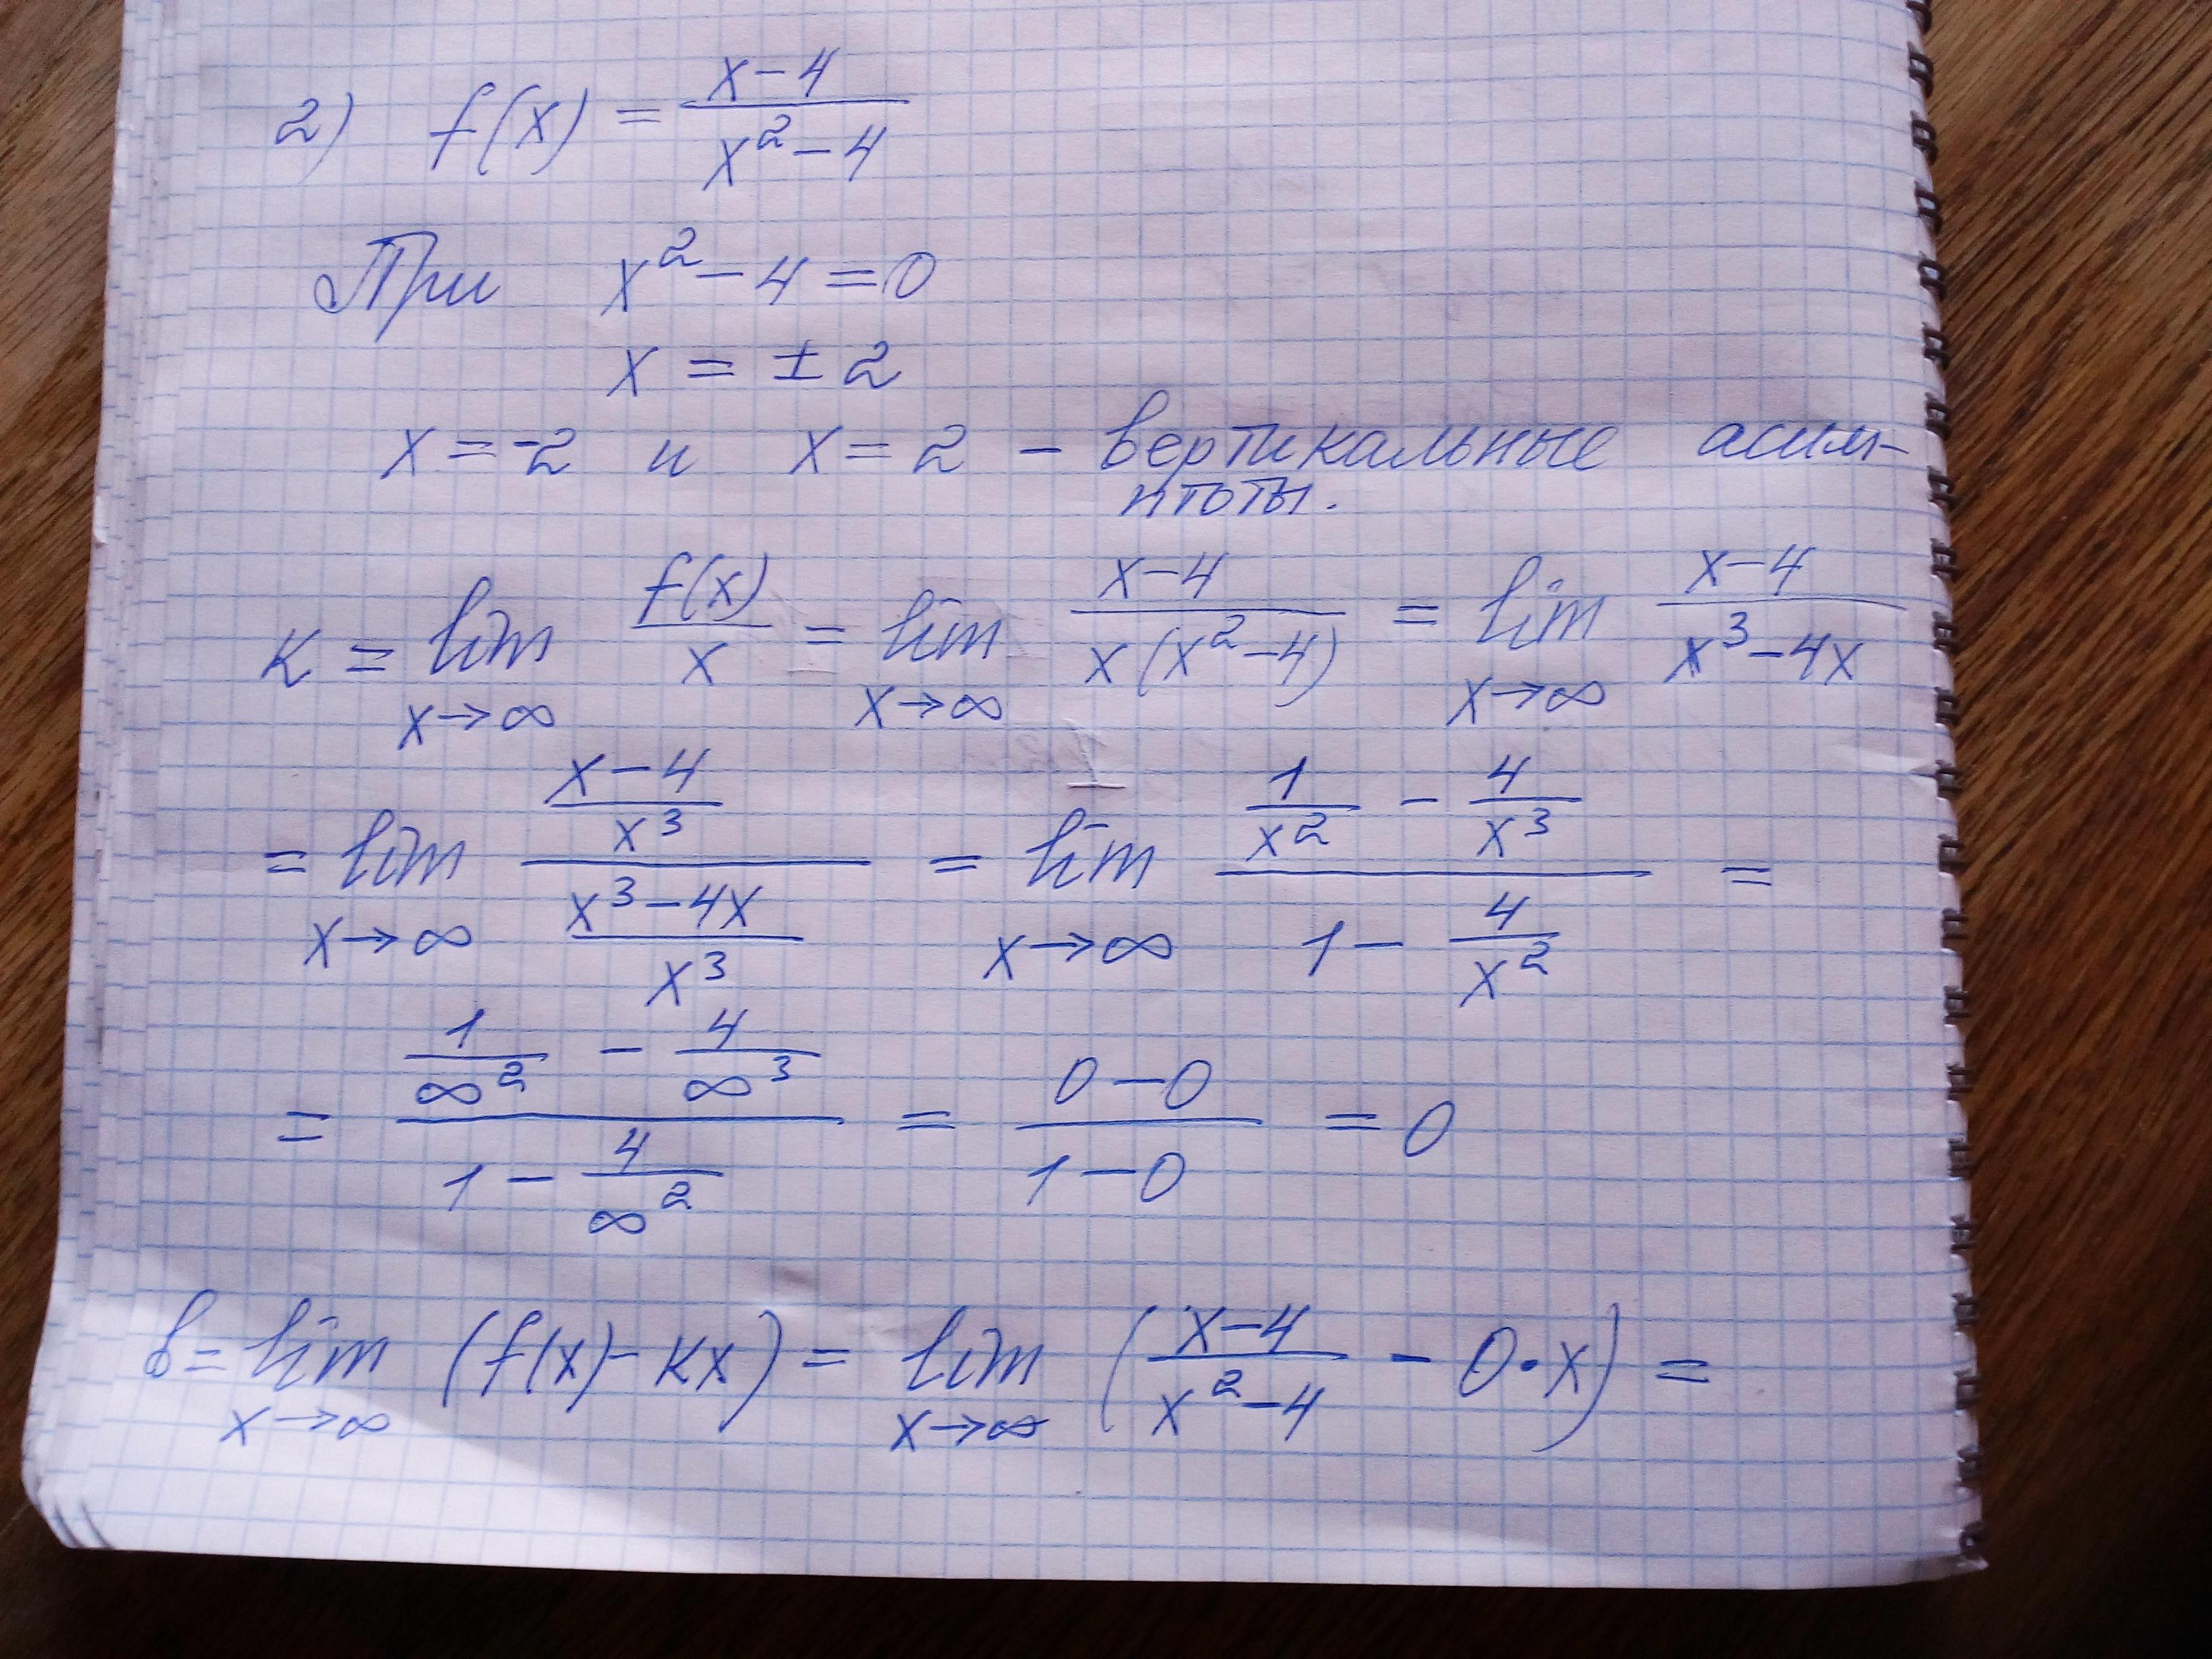 2) f(x) = (x-4)/(x²-4)
При x²-4=0
x = ±2
x=-2 и x=2 - вертикальные асим-
птоты.
k = lim x→∞ f(x)/x = lim x→∞ (x-4)/(x(x²-4)) = lim x→∞ (x-4)/(x³-4x)
= lim x→∞ ((x-4)/x³)/((x³-4x)/x³) = lim x→∞ (1/x² - 4/x³)/(1 - 4/x²) =
= (1/∞² - 4/∞³)/(1 - 4/∞²) = (0-0)/(1-0) = 0
b = lim x→∞ (f(x)-kx) = lim x→∞ ((x-4)/(x²-4) - 0·x) =